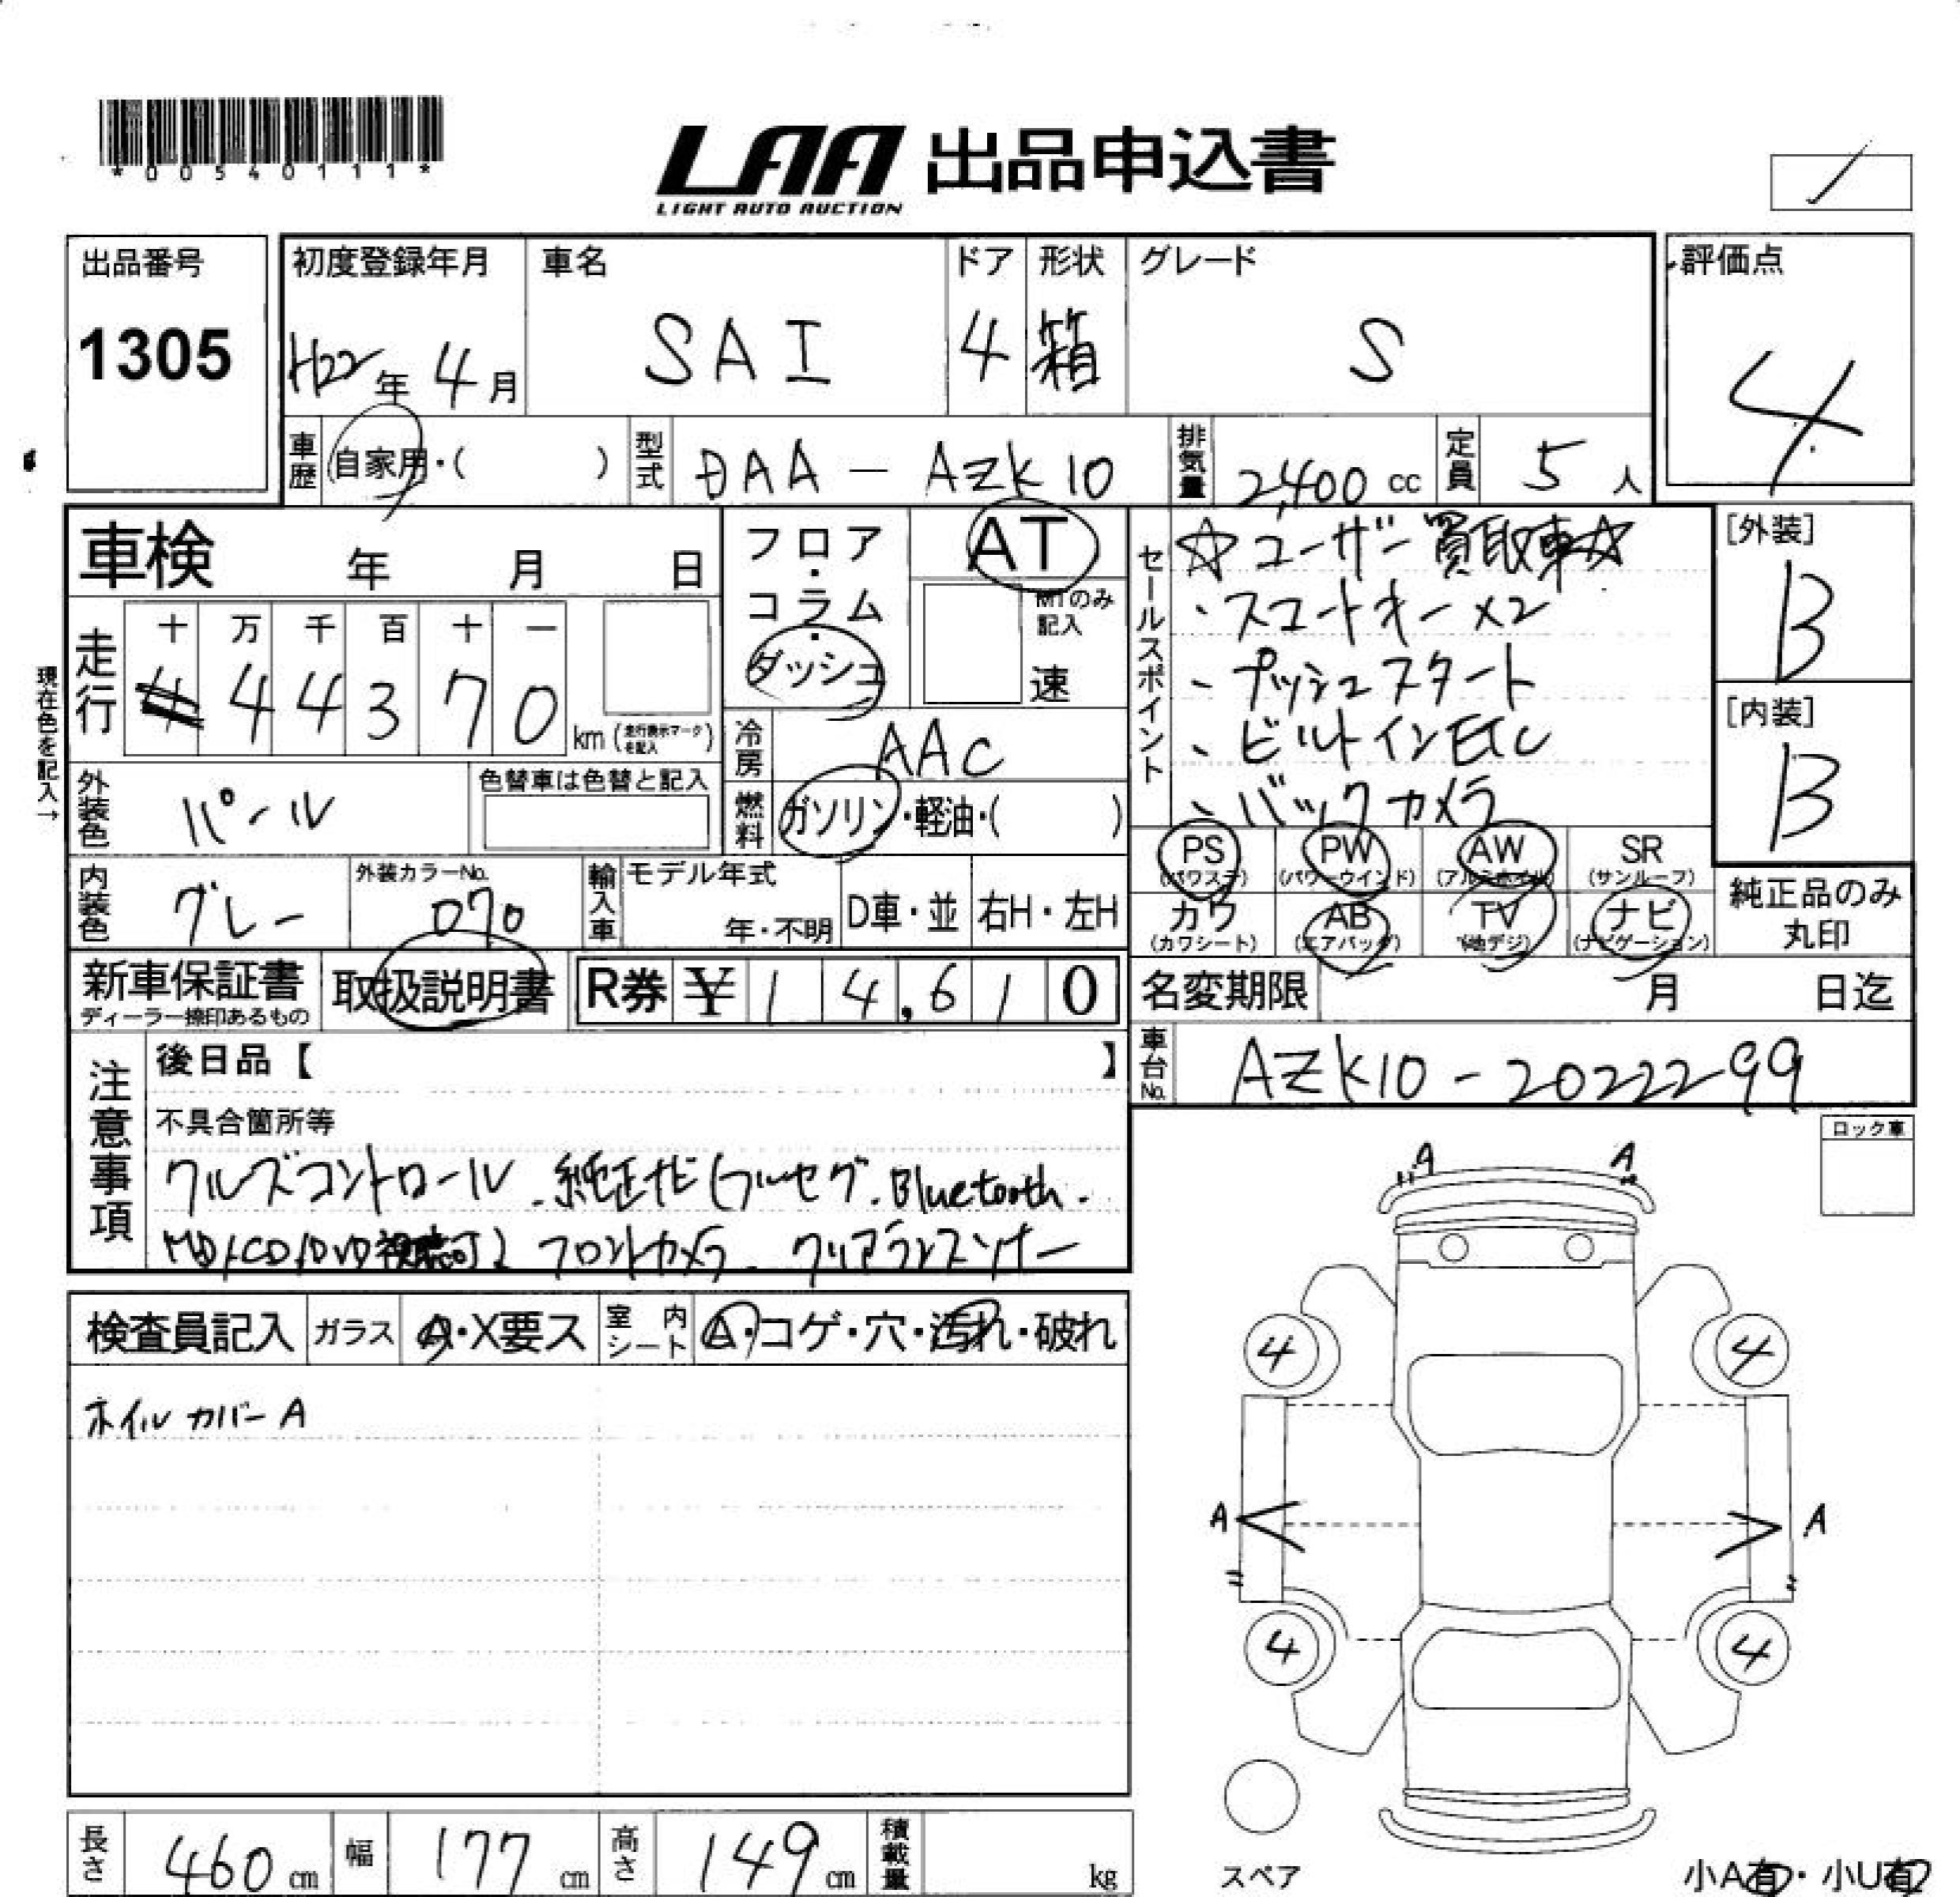 *00540111*
LAA 出品申込書
LIGHT AUTO AUCTION
出品番号 1305
初度登録年月 H22年 4月
車名 SAI
ドア 4
形状 箱
グレード S
評価点 4
車歴 自家用・( )
型式 DAA-AZK10
排気量 2,400 cc
定員 5人
車検 年 月 日
フロア・コラム・ダッシュ
AT
MTのみ記入
速
セールスポイント
☆ユーザー買取車☆
・スマートキー×2
・プッシュスタート
・ビルトインETC
・バックカメラ
[外装] B
[内装] B
現在色を記入→
走行 十 万 千 百 十 一
4 4 3 7 0 km(走行表示マークを記入)
冷房 AAC
燃料 ガソリン・軽油・( )
外装色 パール
色替車は色替と記入
内装色 グレー
外装カラーNo. 070
輸入車 モデル年式 年・不明
D車・並 右H・左H
PS (パワステ) PW (パワーウインド) AW (アルミホイル) SR (サンルーフ)
カワ (カワシート) AB (エアバッグ) TV (地デジ) ナビ (ナビゲーション)
純正品のみ丸印
新車保証書
ディーラー捺印あるもの
取扱説明書
R券 ¥14,610
名変期限 月 日迄
車台No. AZK10-2022299
注意事項
後日品【 】
不具合箇所等
クルーズコントロール、純正ナビ(フルセグ、Bluetooth、
MD/CD/DVD視聴可) フロントカメラ、クリアランスソナー
ロック車
検査員記入
ガラス A・X要ス
室内シート A・コゲ・穴・汚れ・破れ
ホイルカバーA
A A
4 4
A A
4 4
スペア
長さ 460 cm
幅 177 cm
高さ 149 cm
積載量 kg
小A有・小U有2